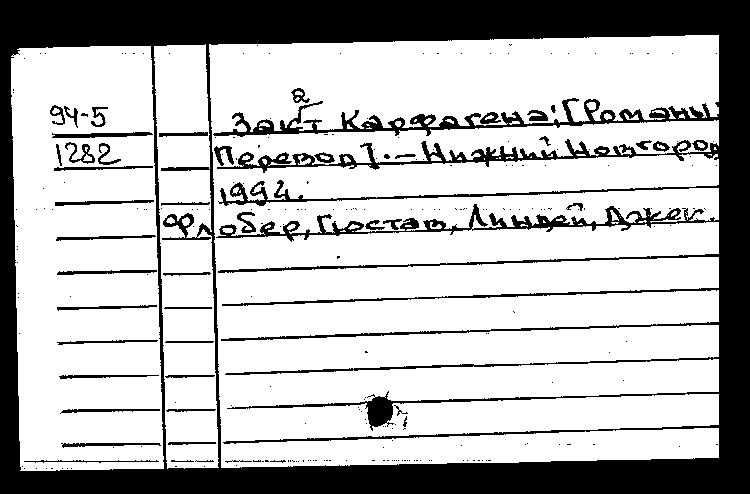 94-5 Закат Карфагена; [Романы:
1282 Перевод]. — Нижний Новгород
1994.
Флобер, Гюстав, Линдсей, Джек.